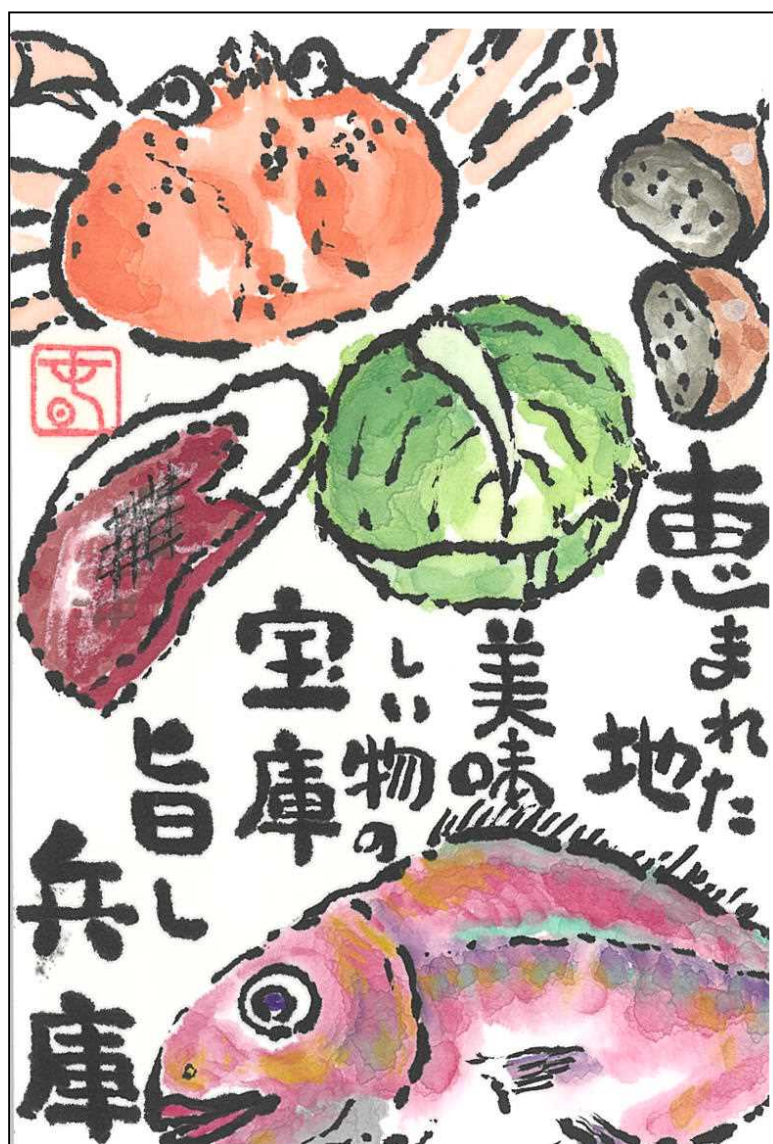 恵まれた
地
美味
しい物の
宝庫
旨し
兵庫